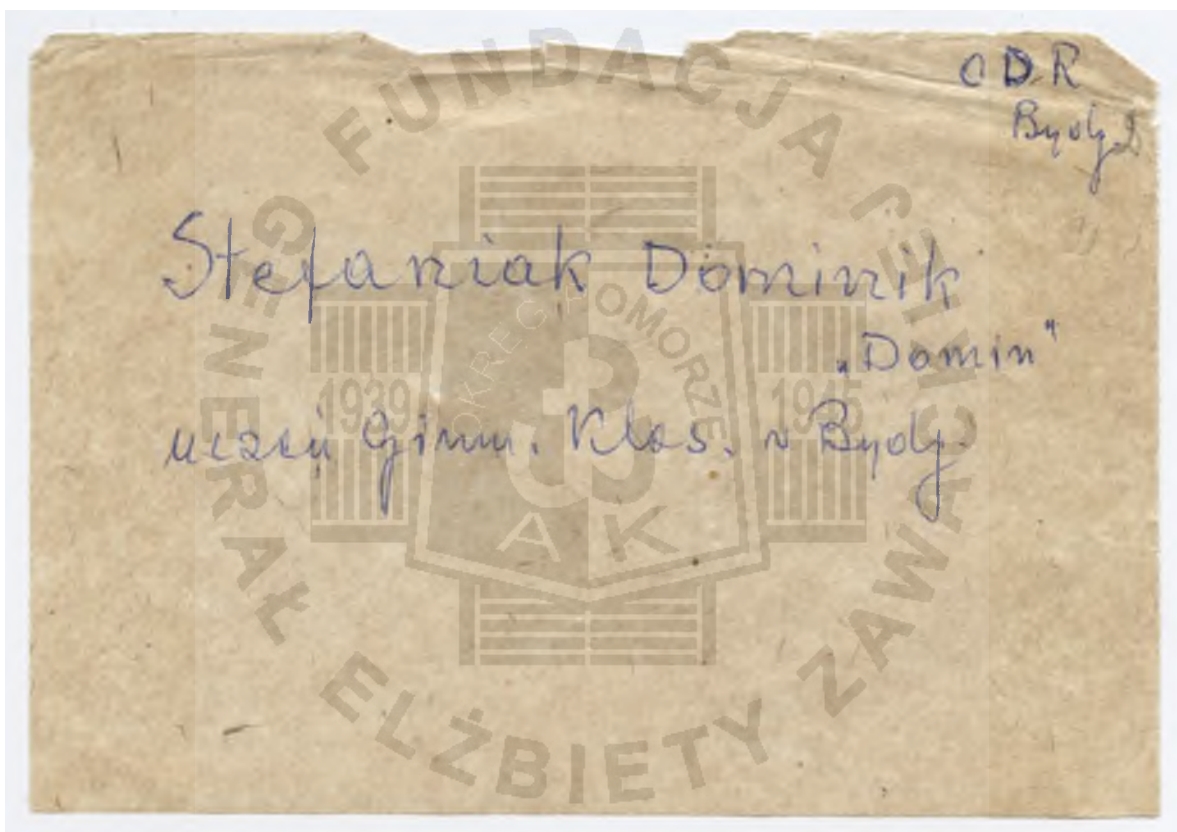 CDR
Bydg
Stefaniak Dominik
„Domin"
uczeń Gimn. Klas. w Bydg.
FUNDACJA GENERAŁ ELŻBIETY ZAWACKIEJ
OKRĘG POMORZE
1939
1945
AK